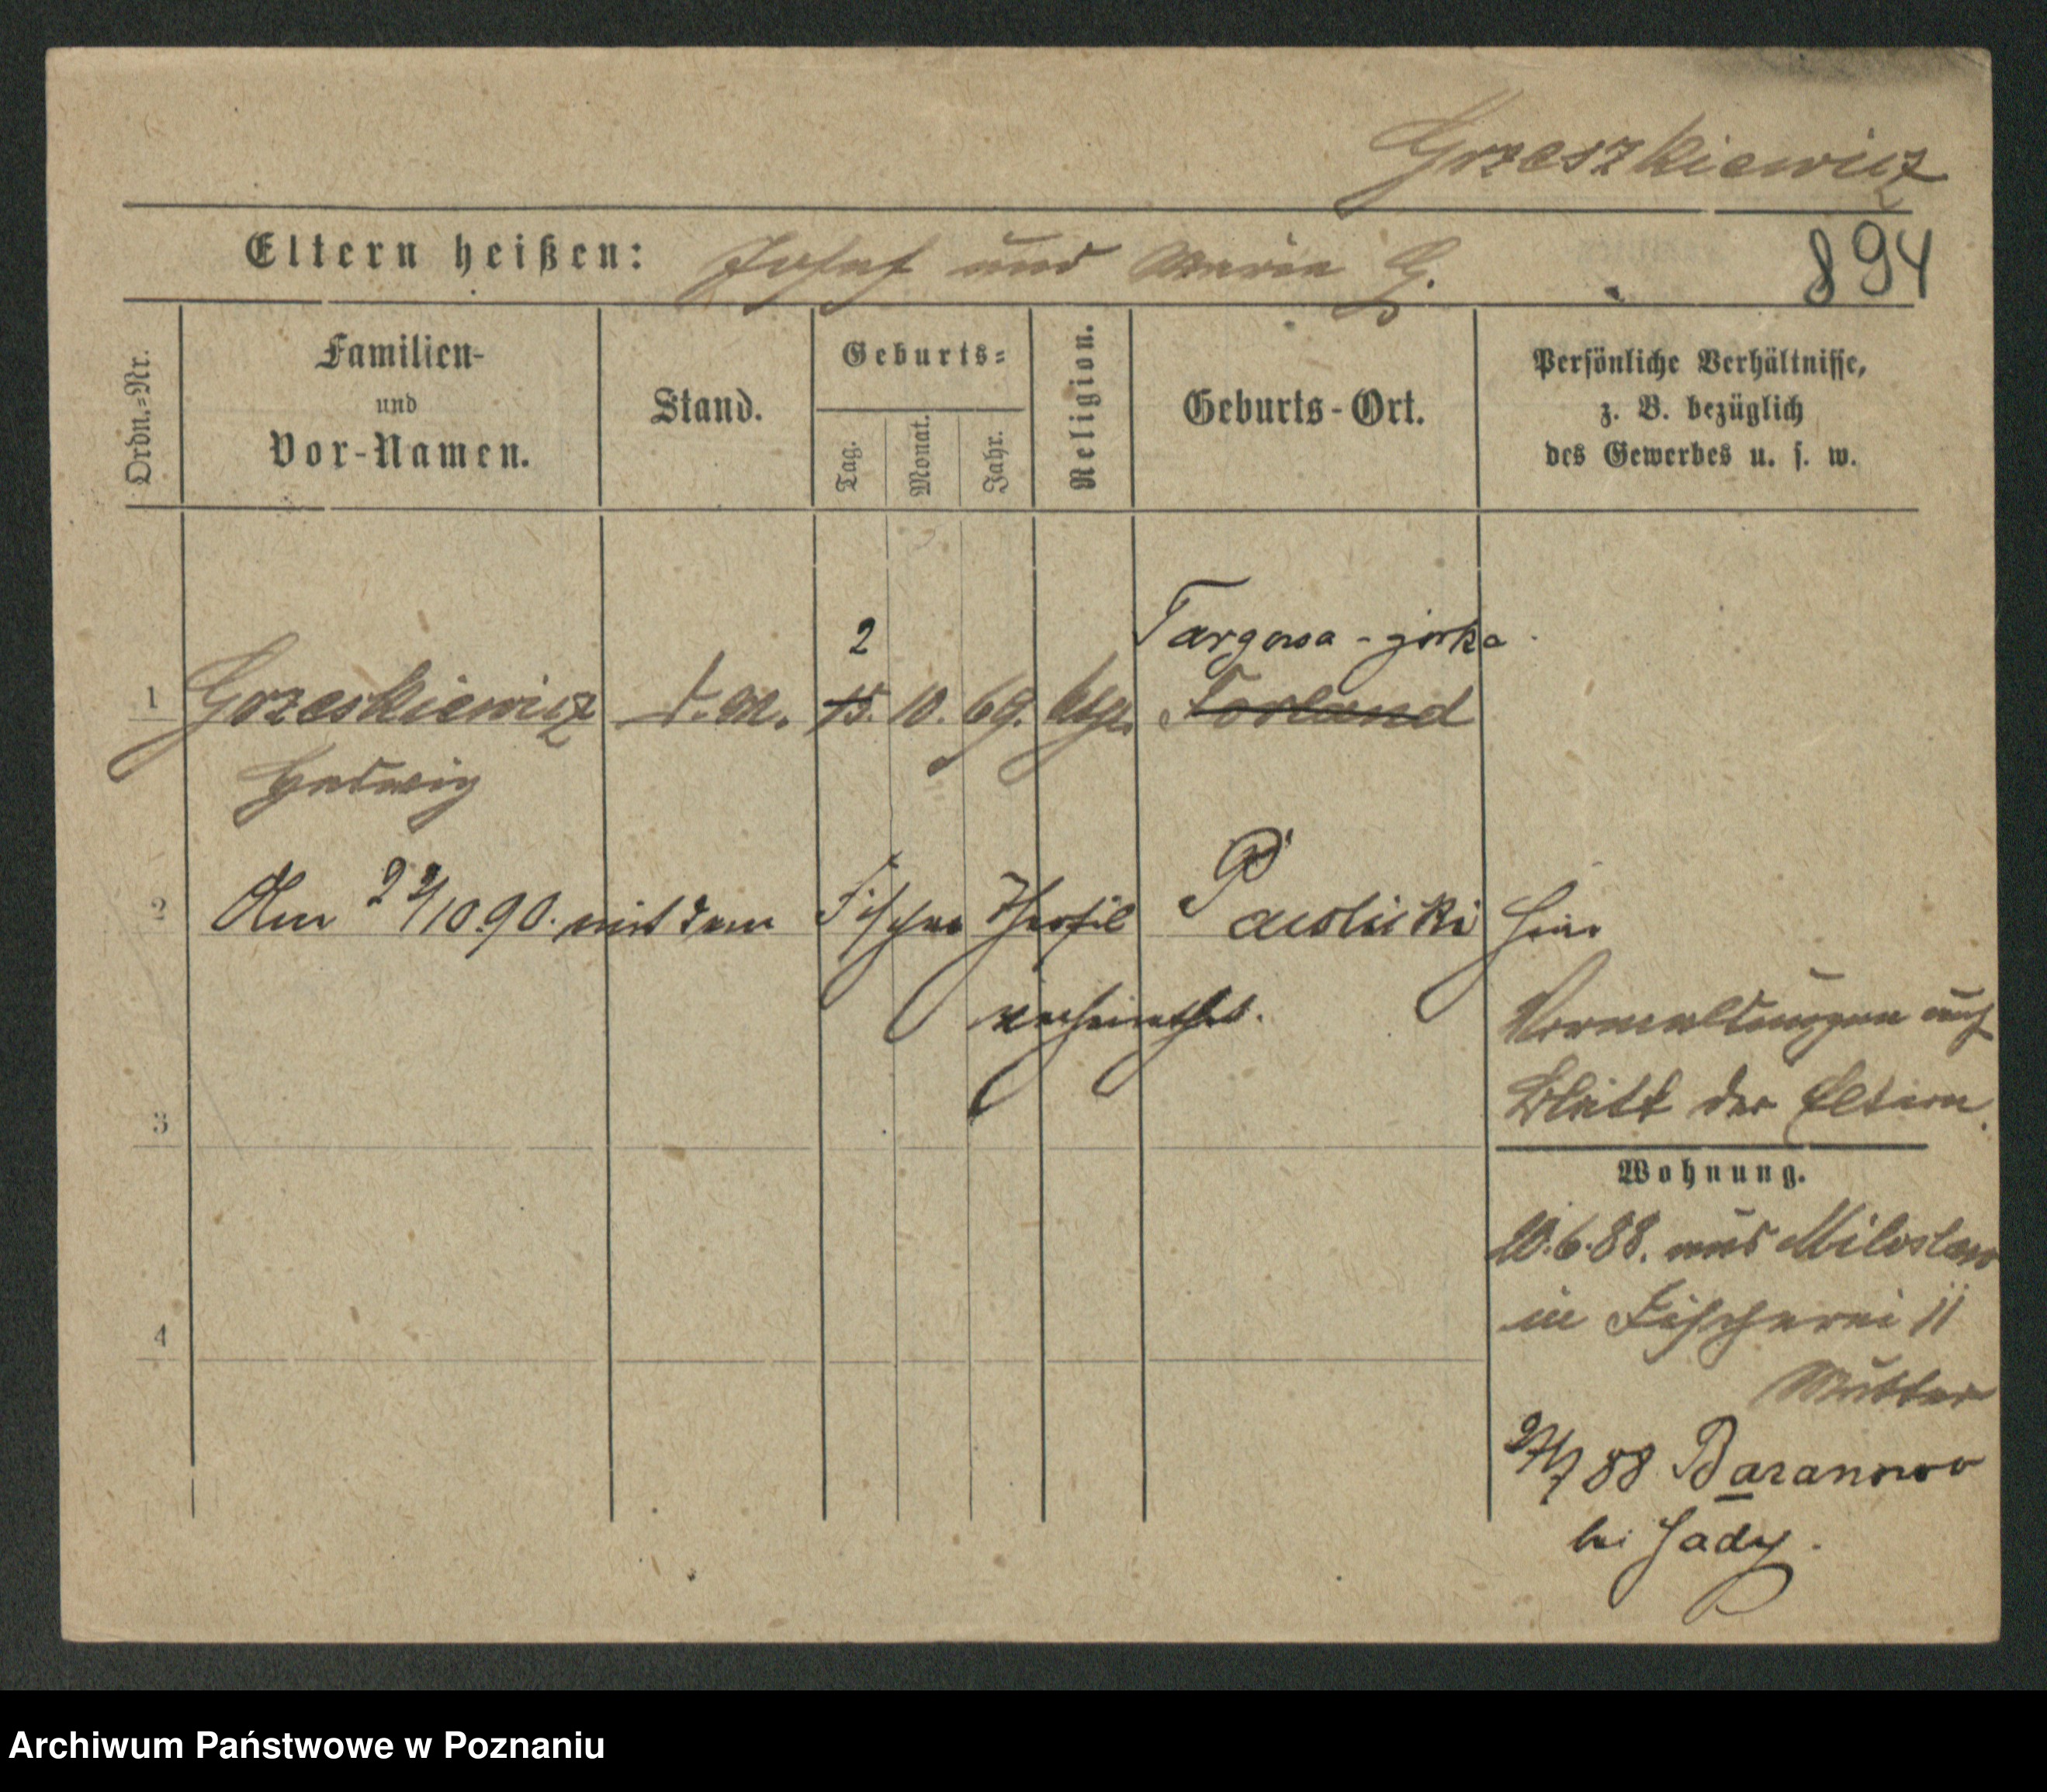 Grzeszkiewicz
Eltern heißen: Josef und Maria G. 894
Ordn.-Nr.
Familien- und Vor-Namen.
Stand.
Geburts-
Tag.
Monat.
Jahr.
Religion.
Geburts-Ort.
Persönliche Verhältnisse,
z. B. bezüglich
des Gewerbes u. s. w.
2 Targowa-gorka
1 Grzeskiewicz 15. 10. 69. ktl. Torland
Hedwig
2 Am 22/10 90. mit dem Fischer Theofil Pawlicki hier
verheirathet.
Vermerkungen auf
Blatt der Eltern.
3
Wohnung.
20.6.88. aus Miloslaw
in Fischerei 11
4
Mutter
27/7 88 Baranowo
bei Sady.
Archiwum Państwowe w Poznaniu